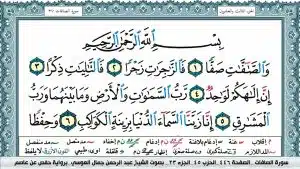 الجزء الثالث والعشرون سورة الصافات ٣٧
بِسْمِ ٱللَّهِ ٱلرَّحْمَٰنِ ٱلرَّحِيمِ
وَٱلصَّٰٓفَّٰتِ صَفًّا ١ فَٱلزَّٰجِرَٰتِ زَجْرًا ٢ فَٱلتَّٰلِيَٰتِ ذِكْرًا ٣
إِنَّ إِلَٰهَكُمْ لَوَٰحِدٌ ٤ رَّبُّ ٱلسَّمَٰوَٰتِ وَٱلْأَرْضِ وَمَا بَيْنَهُمَا وَرَبُّ
ٱلْمَشَٰرِقِ ٥ إِنَّا زَيَّنَّا ٱلسَّمَآءَ ٱلدُّنْيَا بِزِينَةٍ ٱلْكَوَاكِبِ ٦ وَحِفْظًا
سورة الصافات صفحة ٤٤٦ الحزب ٤٥ الجزء ٢٣ بصوت الشيخ عبد الرحمن جمال العوسي برواية حفص عن عاصم